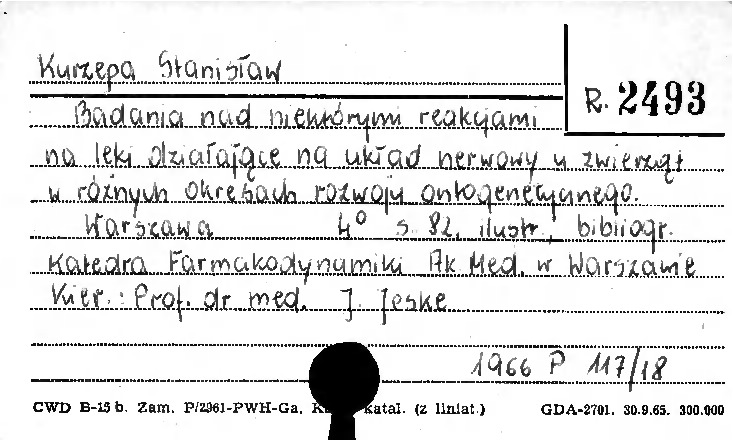 Kurzepa Stanisław
R. 2493
Badania nad niektórymi reakcjami
na leki działające na układ nerwowy u zwierząt
w różnych okresach rozwoju ontogenetycznego.
Warszawa 4° s. 82, ilustr., bibliogr.
Katedra Farmakodynamiki Ak. Med. w Warszawie
Kier.: Prof. dr med. J. Jeske
1966 P 117/18
CWD B-15 b. Zam. P/2961-PWH-Ga. katal. (z liniat.) GDA-2701. 30.9.65. 300.000